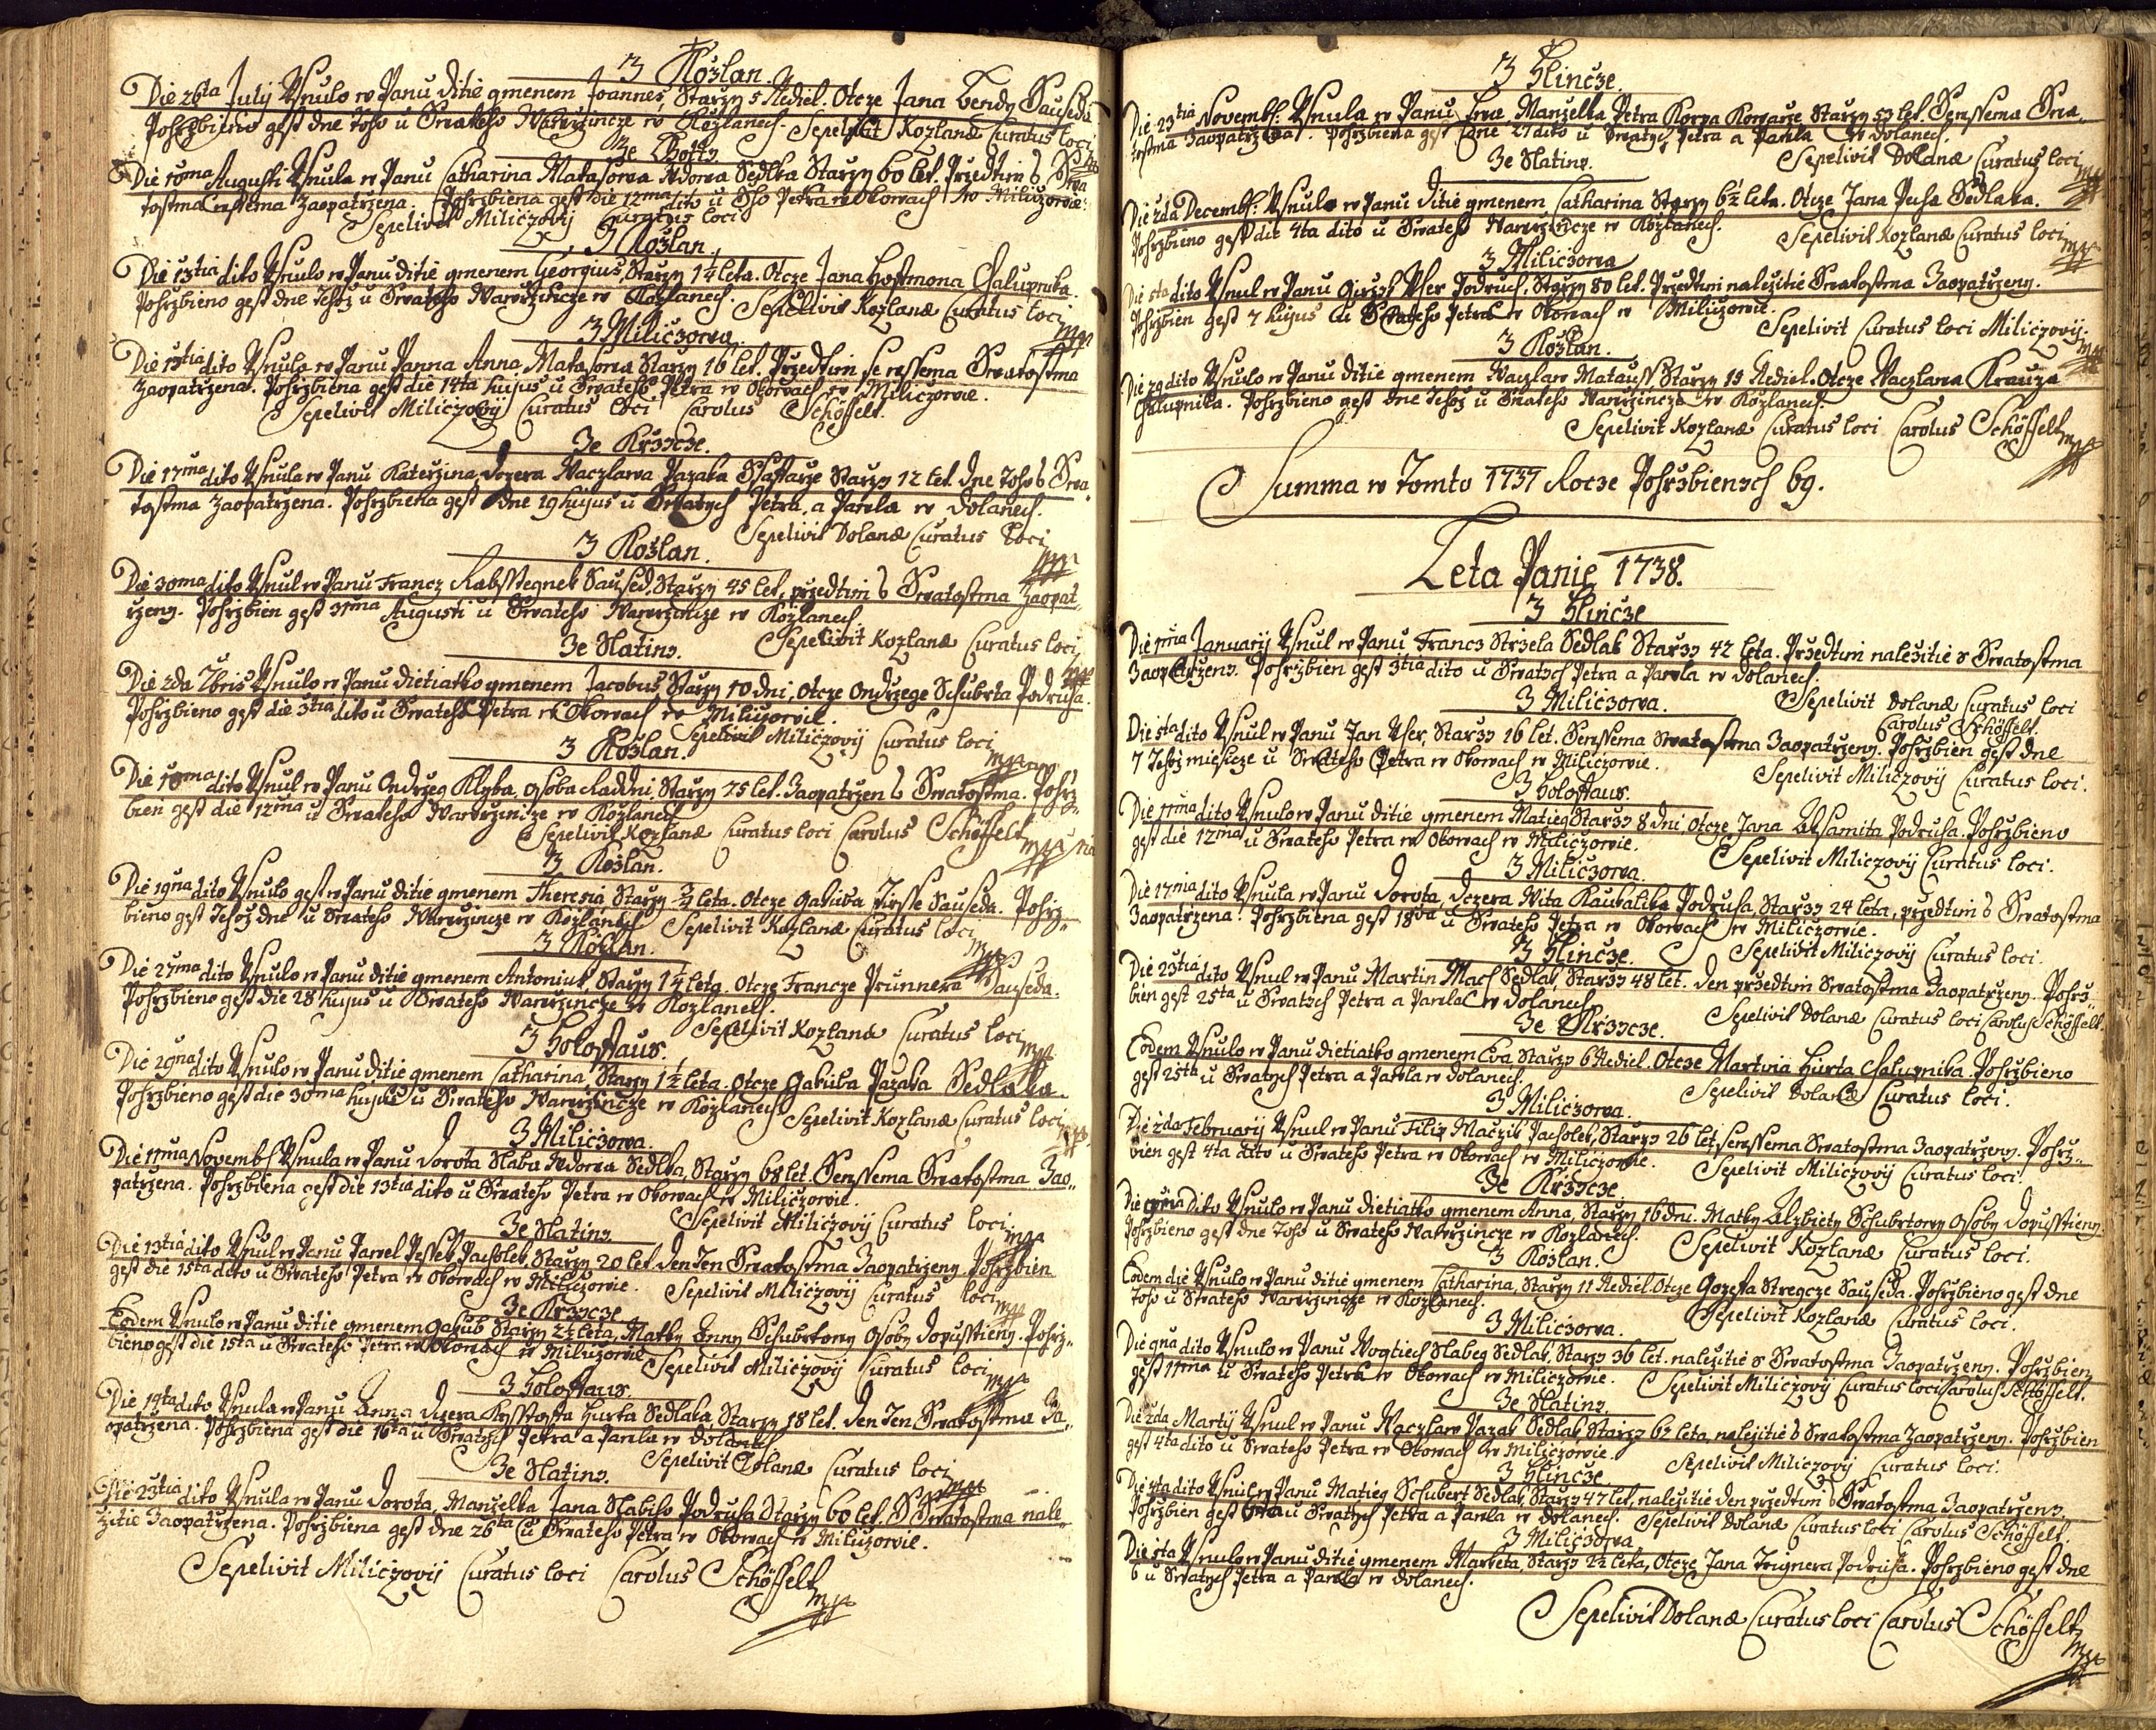 Z Kozlan.
Die 26ta July Usnulo w Panu ditie gmenem Joannes, Starzy 5 Nediel. Otcze Jana Bendy Sauseda
Pohrzbieno gest dne toho u Swateho Wawrzincze w Kozlanech. Sepelivit Kozlanæ Curatus loci
Ze Lhotty
Die 10ma Augusti Usnula w Panu Catharina Matasowa Wdowa Sedlka Starzy 60 let. Przedtim S Swa
tostma Censsema Zaopatrzena. Pohrzbiena gest die 12ma dito u Sho Petra w Okowach w Miliczowie.
Sepelivit Miliczovij Curatus loci
Z Kozlan.
Die 13tia dito Usnulo w Panu ditie gmenem Georgius, Starzy 1¼ leta. Otcze Jana Hoffmona Chalupnika.
Pohrzbieno gest dne Tehoz u Swateho Wawrzincze w Kozlanech. Sepelivit Kozlanæ Curatus loci
mpp
Z Miliczowa.
Die 13tia dito Usnula w Panu Panna Anna Matasowa Starzy 16 let. Przedtim se wssema Swatostma
Zaopatrzena. Pohrzbiena gest die 14ta hujus u Swateho Petra w Okowach w Miliczowie.
Sepelivit Miliczovij Curatus loci Carolus Schöffelt.
Ze Krzycze.
Die 17ma dito Usnula w Panu Katerzina, Dczera Waczlawa Pazaka Schaffarze Starzy 12 let. Dne toho S Swa
tostma Zaopatrzena. Pohrzbiena gest dne 19 hujus u Swatych Petra, a Pawla w Dolanech.
Sepelivit Dolanæ Curatus loci
mpp
Z Kozlan.
Die 30ma dito Usnul w Panu Francz Rabsstegnek Saused, Starzy 45 let, przedtim S Swatostma Zaopat
rzeny. Pohrzbien gest 31ma Augusti u Swateho Wawrzincze w Kozlanech.
Sepelivit Kozlanæ Curatus loci
mpp
Ze Slatiny.
Die 2da 7bris Usnulo w Panu dietiatko gmenem Jacobus, Starzy 10 dni, Otcze Ondrzege Schubrta Podruha.
Pohrzbieno gest die 3tia dito u Swateho Petra w Okowach w Miliczowie.
Sepelivit Miliczovij Curatus loci
mpp
Z Kozlan.
Die 10ma dito Usnul w Panu Ondrzeg Klyba, osoba Raddni, Starzy 75 let. Zaopatrzen S Swatostma. Pohrz
bien gest die 12ma u Swateho Wawrzincze w Kozlanech
Sepelivit Kozlanæ Curatus loci Carolus Schöffelt mpp
Z Kozlan.
Die 19na dito Usnulo gest w Panu ditie gmenem Theresia Starzy ¾ leta. Otcze Gakuba Firsse Sauseda. Pohrz
bieno gest Tehoz dne u Swateho Wawrzincze w Kozlanech Sepelivit Kozlanæ Curatus loci
mpp
Z Kozlan.
Die 27ma dito Usnulo w Panu ditie gmenem Antonius, Starzy 1¼ leta. Otcze Francze Prunnera Sauseda.
Pohrzbieno gest die 28 hujus u Swateho Wawrzincze w Kozlanech.
Sepelivit Kozlanæ Curatus loci
mpp
Z Holoflaus.
Die 29na dito Usnulo w Panu ditie gmenem Catharina, Starzy 1½ leta. Otcze Gakuba Pazaka Sedlaka.
Pohrzbieno gest die 30ma hujus u Swateho Wawrzincze w Kozlanech
Sepelivit Kozlanæ Curatus loci
mpp
Z Miliczowa.
Die 11ma Novemb: Usnula w Panu Dorota Slaba Wdowa Sedlka, Starzy 68 let. Sewssema Swatostma Zao
patrzena. Pohrzbiena gest die 13tia dito u Swateho Petra w Okowach w Miliczowie.
Sepelivit Miliczovij Curatus loci
mpp
Ze Slatiny
Die 13tia dito Usnul w Panu Pawel Pessek Pacholek, Starzy 20 let. Den Ten Swatostma Zaopatrzeny. Pohrzbien
gest die 15ta dito u Swateho Petra w Okowach w Miliczowie. Sepelivit Miliczovij Curatus loci
mpp
Ze Krzycze.
Eodem Usnulo w Panu ditie gmenem Gakub Starzy 2½ leta, Matky Anny Schubrtowy Osoby dopusstieny. Pohrz
bieno gest die 15ta u Swateho Petra w Okowach w Miliczowie Sepelivit Miliczovij Curatus loci
mpp
Z Holoflaus.
Die 14ta dito Usnula w Panu Anna Dczera Krysstofa Hurta Sedlaka, Starzy 18 let. Den Ten Swatostma Za
opatrzena. Pohrzbiena gest die 16ta u Swatych Petra a Pawla w Dolanech
Sepelivit Dolanæ Curatus loci
mpp
Ze Slatiny.
Die 23tia dito Usnula w Panu Dorota, Manzelka Jana Slabiho Podruha Starzy 60 let. S Swatostma nale
zitie Zaopatrzena. Pohrzbiena gest dne 26ta u Swateho Petra w Okowach w Miliczowie.
Sepelivit Miliczovij Curatus loci Carolus Schöffelt
mpp
Z Hlincze.
Die 23tia Novemb: Usnula w Panu Ewa Manzelka Petra Korpa Kowarze Starzy 53 let. Sewssema Swa
tostma Zaopatrzena. Pohrzbiena gest dne 27 dito u Swatych Petra a Pawla w Dolanech.
Sepelivit Dolanæ Curatus loci
mpp
Ze Slatiny.
Die 2da Decemb: Usnulo w Panu ditie gmenem Catharina Starzy 6½ leta. Otcze Jana Pecha Sedlaka.
Pohrzbieno gest die 4ta dito u Swateho Wawrzincze w Kozlanech.
Sepelivit Kozlanæ Curatus loci
mpp
Z Miliczowa
Die 5ta dito Usnul w Panu Girzy User Podruh, Starzy 80 let. Przedtim nalezitie Swatostma Zaopatrzeny.
Pohrzbien gest 7 hujus u Swateho Petra w Okowach w Miliczowie.
Sepelivit Curatus loci Miliczovij.
mpp
Z Kozlan.
Die 29 dito Usnulo w Panu ditie gmenem Waczlaw Matauss, Starzy 15 Nediel. Otcze Waczlawa Krauza
Chalupnika. Pohrzbieno gest dne Tehoz u Swateho Wawrzincze w Kozlanech.
Sepelivit Kozlanæ Curatus loci Carolus Schöffelt
mpp
Summa w Tomto 1737 Rocze Pohrzbienych 69.
Leta Panie 1738.
Z Hlincze
Die 1ma Januarij Usnul w Panu Francz Strzela Sedlak Starzy 42 leta. Przedtim nalezitie S Swatostma
Zaopatrzeny. Pohrzbien gest 3tia dito u Swatych Petra a Pawla w Dolanech.
Sepelivit Dolanæ Curatus loci
Carolus Schöffelt.
Z Miliczowa.
Die 5ta dito Usnul w Panu Jan User, Starzy 16 let. Sewssema Swatostma Zaopatrzeny. Pohrzbien gest dne
7 Tehoz miesicze u Swateho Petra w Okowach w Miliczowie.
Sepelivit Miliczovij Curatus loci.
Z Holoflaus.
Die 11ma dito Usnulo w Panu ditie gmenem Matieg Starzy 8 dni Otcze Jana Aksamita Podruha. Pohrzbieno
gest die 12ma u Swateho Petra w Okowach w Miliczowie.
Sepelivit Miliczovij Curatus loci.
Z Miliczowa.
Die 17ma dito Usnula w Panu Dorota, Dczera Wita Kaukalika Podruha, Starzy 24 leta, przedtim S Swatostma
Zaopatrzena. Pohrzbiena gest 18va u Swateho Petra w Okowach w Miliczowie.
Sepelivit Miliczovij Curatus loci.
Z Hlincze.
Die 23tia dito Usnul w Panu Martin Mach Sedlak, Starzy 48 let. Den przedtim Swatostma Zaopatrzeny. Pohrz
bien gest 25ta u Swatych Petra a Pawla w Dolanech
Sepelivit Dolanæ Curatus loci Carolus Schöffelt.
Ze Krzycze.
Eodem Usnulo w Panu dietiatko gmenem Eva, Starzy 6 Nediel. Otcze Martina Hurta Chalupnika. Pohrzbieno
gest 25ta u Swatych Petra a Pawla w Dolanech.
Sepelivit Dolanæ Curatus loci.
Z Miliczowa.
Die 2da Februarij Usnul w Panu Filip Maczik Pacholek, Starzy 26 let, sewssema Swatostma Zaopatrzeny. Pohrz
bien gest 4ta dito u Swateho Petra w Okowach w Miliczowie.
Sepelivit Miliczovij Curatus loci.
Ze Krzycze.
Die dito Usnulo w Panu dietiatko gmenem Anna, Starzy 16 dni. Matky Alzbiety Schubrtowy Osoby dopusstieny
Pohrzbieno gest dne toho u Swateho Wawrzincze w Kozlanech.
Sepelivit Kozlanæ Curatus loci.
Z Kozlan.
Eodem die Usnulo w Panu ditie gmenem Catharina, Starzy 11 Nediel. Otcze Gozefa Stregcze Sauseda. Pohrzbieno gest dne
toho u Swateho Wawrzincze w Kozlanech.
Sepelivit Kozlanæ Curatus loci.
Z Miliczowa.
Die 9na dito Usnulo w Panu Wogtiech Slabeg Sedlak, Starzy 36 let. nalezitie S Swatostma Zaopatrzeny. Pohrzbien
gest 11ma u Swateho Petra w Okowach w Miliczowie.
Sepelivit Miliczovij Curatus loci Carolus Schöffelt.
Ze Slatiny.
Die 2da Martij Usnul w Panu Waczlaw Pazak Sedlak Starzy 62 leta, nalezitie S Swatostma Zaopatrzeny. Pohrzbien
gest 4ta dito u Swateho Petra w Okowach w Miliczowie.
Sepelivit Miliczovij Curatus loci.
Z Hlincze
Die 4ta dito Usnul w Panu Matieg Schubert Sedlak, Starzy 47 let, nalezitie den przedtim S Swatostma Zaopatrzeny.
Pohrzbien gest u Swatych Petra a Pawla w Dolanech. Sepelivit Dolanæ Curatus loci Carolus Schöffelt.
Z Miliczowa
Die 5ta Usnulo w Panu ditie gmenem Marketa, Starzy 2½ leta, Otcze Jana Trignera Podruha. Pohrzbieno gest dne
6 u Swatych Petra a Pawla w Dolanech.
Sepelivit Dolanæ Curatus loci Carolus Schöffelt
mpp